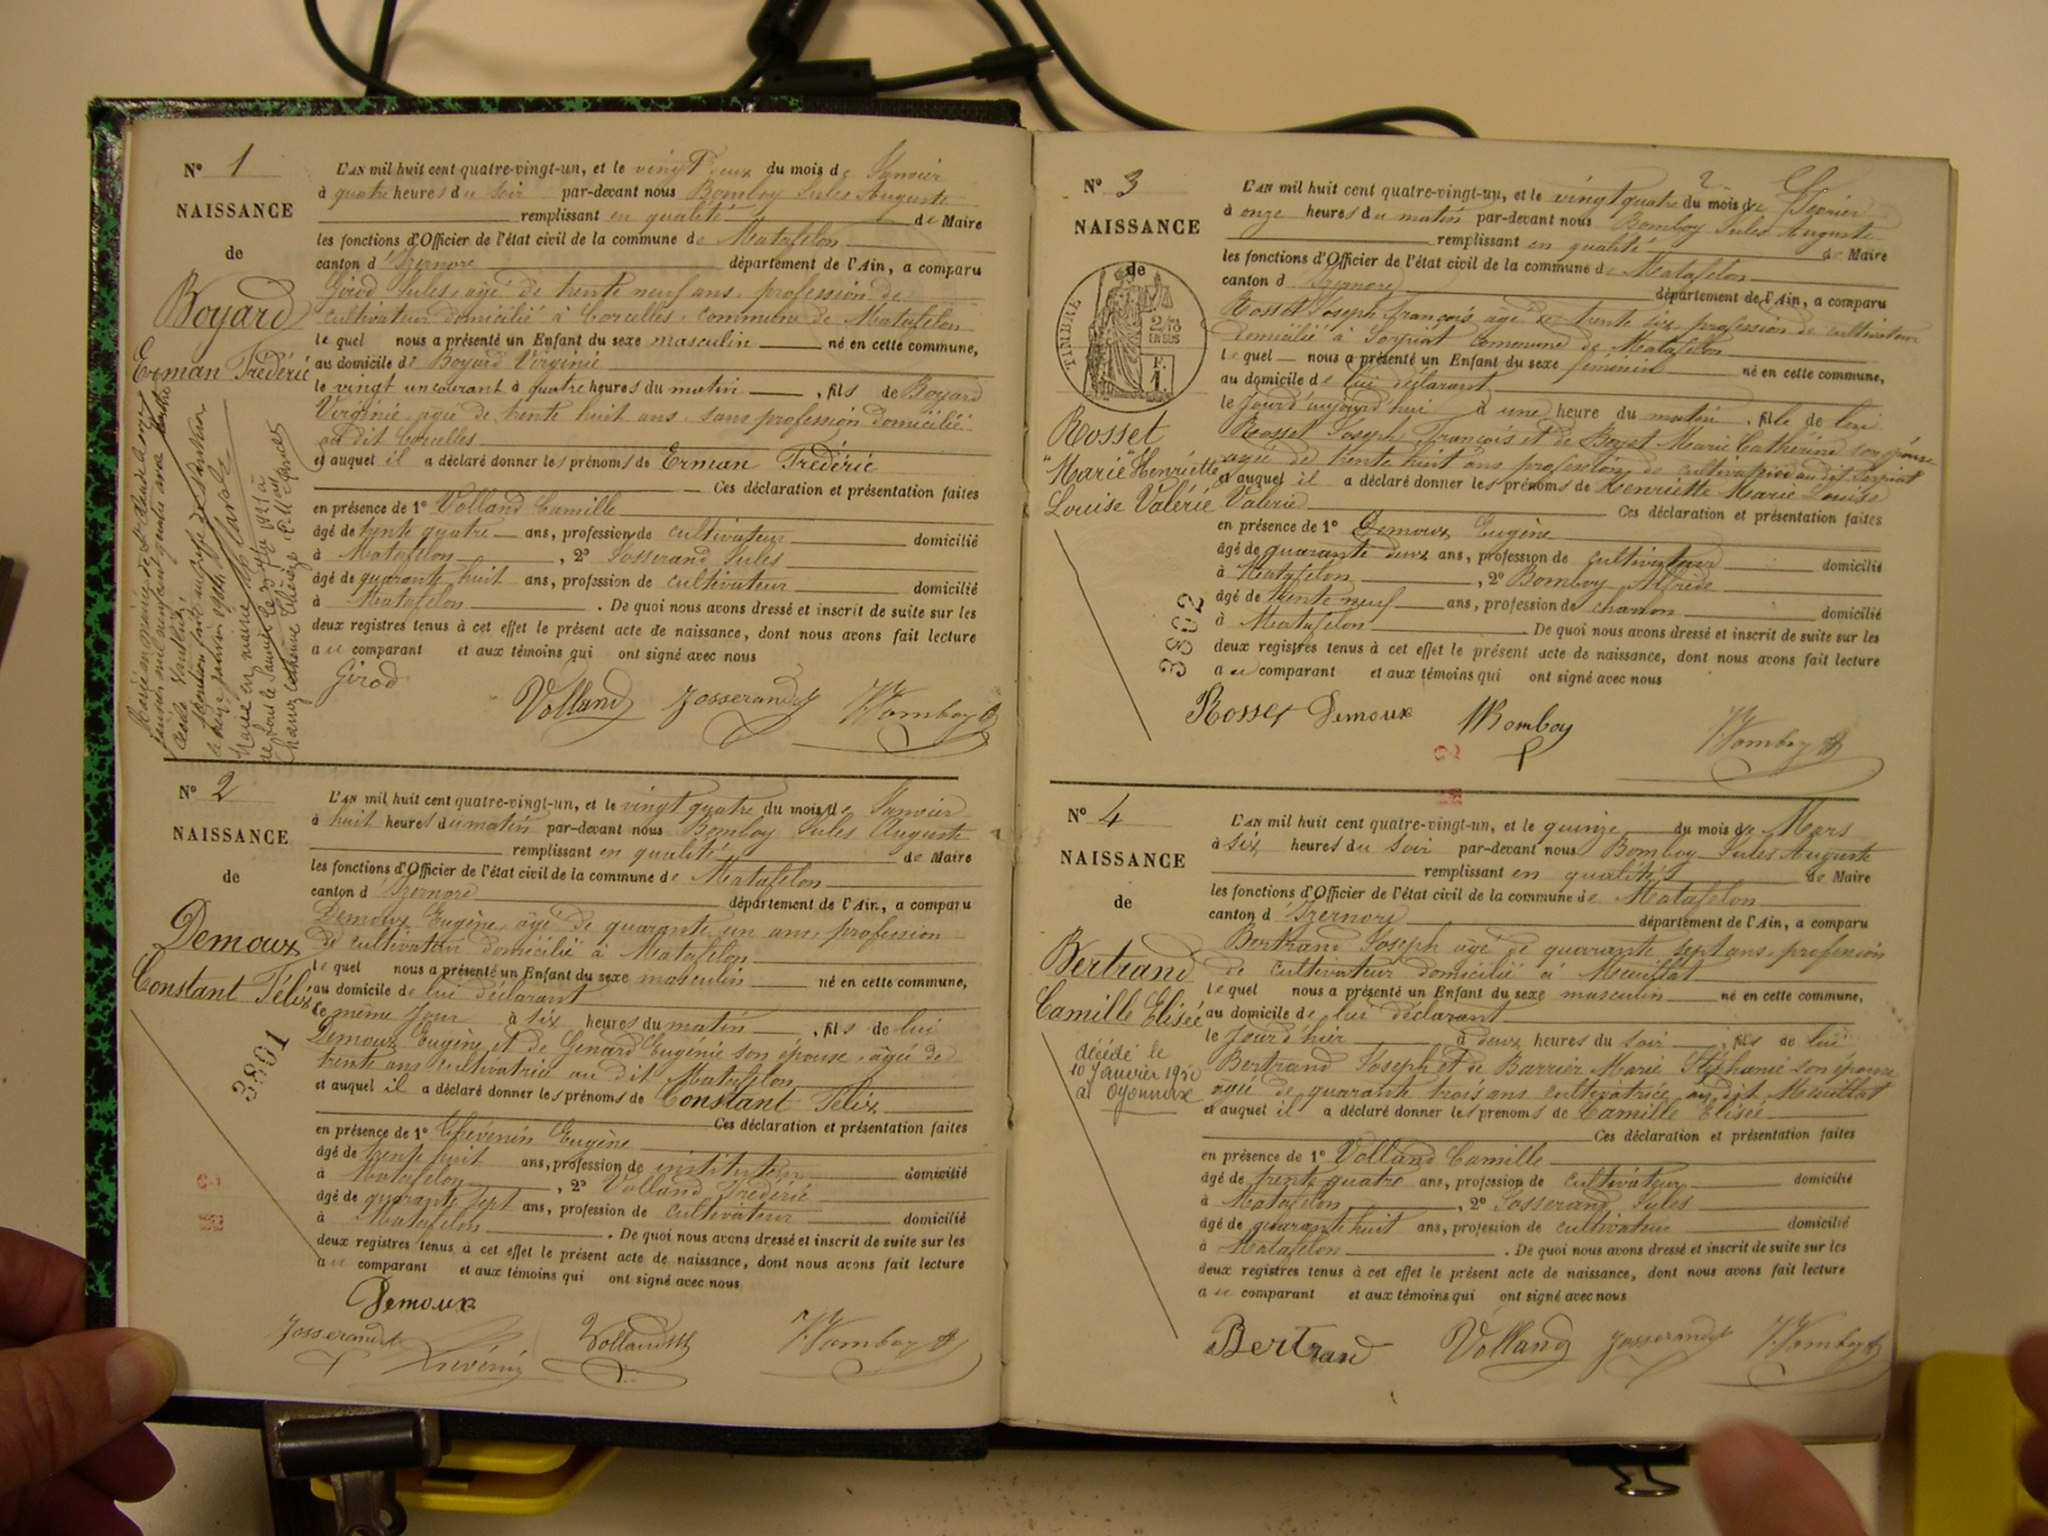 N° 1
NAISSANCE
de
Boyard
Erman Frédéric
L'AN mil huit cent quatre-vingt-un, et le vingt deux du mois de Janvier
à quatre heures du soir par-devant nous Bomboy Jules Auguste
remplissant en qualité de Maire
les fonctions d'Officier de l'état civil de la commune de Matafelon
canton d'Izernore département de l'Ain, a comparu
Girod Jules, âgé de trente neuf ans, profession de
cultivateur domicilié à Corcelles, commune de Matafelon
le quel nous a présenté un Enfant du sexe masculin né en cette commune,
au domicile de Boyard Virginie
le vingt un courant à quatre heures du matin, fils de Boyard
Virginie, agée de trente huit ans, sans profession domiciliée
au dit Corcelles
et auquel il a déclaré donner les prénoms de Erman Frédéric
Ces déclaration et présentation faites
en présence de 1° Volland Camille
âgé de trente quatre ans, profession de cultivateur domicilié
à Matafelon, 2° Josserand Jules
âgé de quarante huit ans, profession de cultivateur domicilié
à Matafelon. De quoi nous avons dressé et inscrit de suite sur les
deux registres tenus à cet effet le présent acte de naissance, dont nous avons fait lecture
au comparant et aux témoins qui ont signé avec nous
Girod
Volland Josserand J Bomboy
N° 2
NAISSANCE
de
Demoux
Constant Félix
3801
L'AN mil huit cent quatre-vingt-un, et le vingt quatre du mois de Janvier
à huit heures du matin par-devant nous Bomboy Jules Auguste
remplissant en qualité de Maire
les fonctions d'Officier de l'état civil de la commune de Matafelon
canton d'Izernore département de l'Ain, a comparu
Demoux Eugène, âgé de quarante un ans, profession
de cultivateur domicilié à Matafelon
le quel nous a présenté un Enfant du sexe masculin né en cette commune,
au domicile de lui déclarant
le même jour à six heures du matin, fils de lui
Demoux Eugène et de Genard Eugénie son épouse, âgée de
trente ans cultivatrice au dit Matafelon
et auquel il a déclaré donner les prénoms de Constant Félix
Ces déclaration et présentation faites
en présence de 1° Thevenin Eugène
âgé de trente huit ans, profession de instituteur domicilié
à Matafelon, 2° Volland Frédéric
âgé de quarante sept ans, profession de cultivateur domicilié
à Matafelon. De quoi nous avons dressé et inscrit de suite sur les
deux registres tenus à cet effet le présent acte de naissance, dont nous avons fait lecture
au comparant et aux témoins qui ont signé avec nous
Demoux
Josserand Thévenin Volland J Bomboy
N° 3
NAISSANCE
de
TIMBRE
Rosset
"Marie" Henriette
Louise Valérie
3802
L'AN mil huit cent quatre-vingt-un, et le vingt quatre du mois de Février
à onze heures du matin par-devant nous Bomboy Jules Auguste
remplissant en qualité de Maire
les fonctions d'Officier de l'état civil de la commune de Matafelon
canton d'Izernore département de l'Ain, a comparu
Rosset Joseph François âgé de trente six, profession de cultivateur
domicilié à Sorpiat commune de Matafelon
le quel nous a présenté un Enfant du sexe féminin né en cette commune,
au domicile de lui déclarant
le Jourd'aujourd'hui à une heure du matin, fille de lui
Rosset Joseph François et de Marie Catherine son épouse
agée de trente huit ans profession de au dit Sorpiat
et auquel il a déclaré donner les prénoms de Henriette Marie Louise
Valérie Ces déclaration et présentation faites
en présence de 1° Demoux Eugène
âgé de quarante deux ans, profession de cultivateur domicilié
à Matafelon, 2° Bomboy Alfred
âgé de trente neuf ans, profession de charron domicilié
à Matafelon De quoi nous avons dressé et inscrit de suite sur les
deux registres tenus à cet effet le présent acte de naissance, dont nous avons fait lecture
au comparant et aux témoins qui ont signé avec nous
Rosset Demoux Bomboy
J Bomboy
N° 4
NAISSANCE
de
Bertrand
Camille Elisée
décédé le
10 Janvier 1950
à Oyonnax
L'AN mil huit cent quatre-vingt-un, et le quinze du mois de Mars
à six heures du soir par-devant nous Bomboy Jules Auguste
remplissant en qualité de Maire
les fonctions d'Officier de l'état civil de la commune de Matafelon
canton d'Izernore département de l'Ain, a comparu
Bertrand Joseph âgé de quarante sept ans, profession
de cultivateur domicilié à Meuillat
le quel nous a présenté un Enfant du sexe masculin né en cette commune,
au domicile de lui déclarant
le Jourd'hier à deux heures du soir, fils de lui
Bertrand Joseph et de Barrier Marie Stéphanie son épouse
agée de quarante trois ans cultivatrice au dit Meuillat
et auquel il a déclaré donner les prénoms de Camille Elisée
Ces déclaration et présentation faites
en présence de 1° Volland Camille
âgé de trente quatre ans, profession de cultivateur domicilié
à Matafelon, 2° Josserand Jules
âgé de quarante huit ans, profession de cultivateur domicilié
à Matafelon. De quoi nous avons dressé et inscrit de suite sur les
deux registres tenus à cet effet le présent acte de naissance, dont nous avons fait lecture
au comparant et aux témoins qui ont signé avec nous
Bertrand Volland Josserand J Bomboy